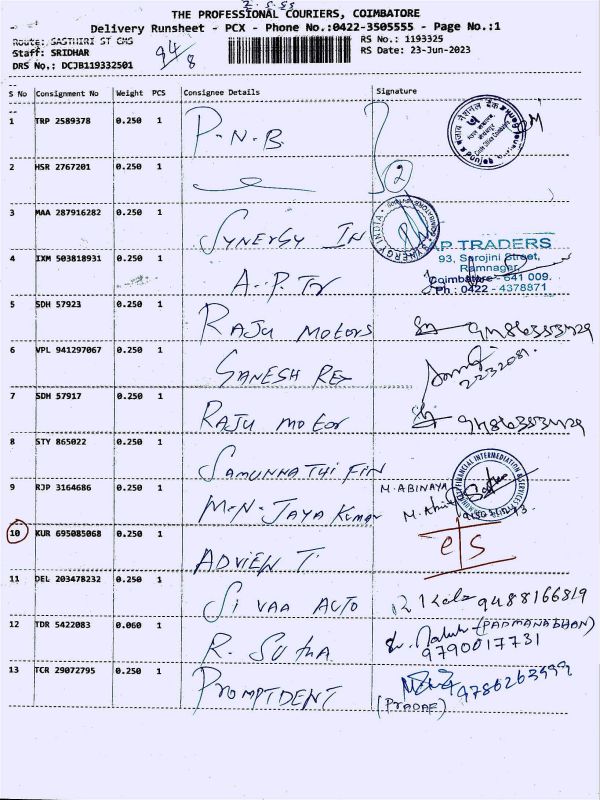 THE PROFESSIONAL COURIERS, COIMBATORE
Delivery Runsheet - PCX - Phone No.:0422-3505555 - Page No.:1
Route: SASTHIRI ST CMS
RS No.: 1193325
Staff: SRIDHAR
94/8
RS Date: 23-Jun-2023
DRS No.: DCJB119332501
S No Consignment No Weight PCS Consignee Details Signature
1 TRP 2589378 0.250 1 P.N.B
2 HSR 2767201 0.250 1
2
3 MAA 287916282 0.250 1 SYNERGY IN
4 IXM 503818931 0.250 1 A.P. Tr
A.P TRADERS
93, Sarojini Street,
Ramnagar,
Coimbatore - 641 009.
Ph : 0422 - 4378871
5 SDH 57923 0.250 1 RAJU MOTORS
6 VPL 941297067 0.250 1 GANESH REF
2232081.
7 SDH 57917 0.250 1 RAJU MOTOR
8 STY 865022 0.250 1 SAMUNNATHI FIN
9 RJP 3164686 0.250 1 M.N. JAYA KUMAR
M. ABINAYA
10 KUR 695085068 0.250 1 ADVIEN T.
e/s
11 DEL 203478232 0.250 1 SIVAA AUTO
R Kala 9488166819
12 TDR 5422083 0.060 1 R. SUTHA
(PADMANABHAN)
9790017731
13 TCR 29072795 0.250 1 PROMPTDENT
9786263999